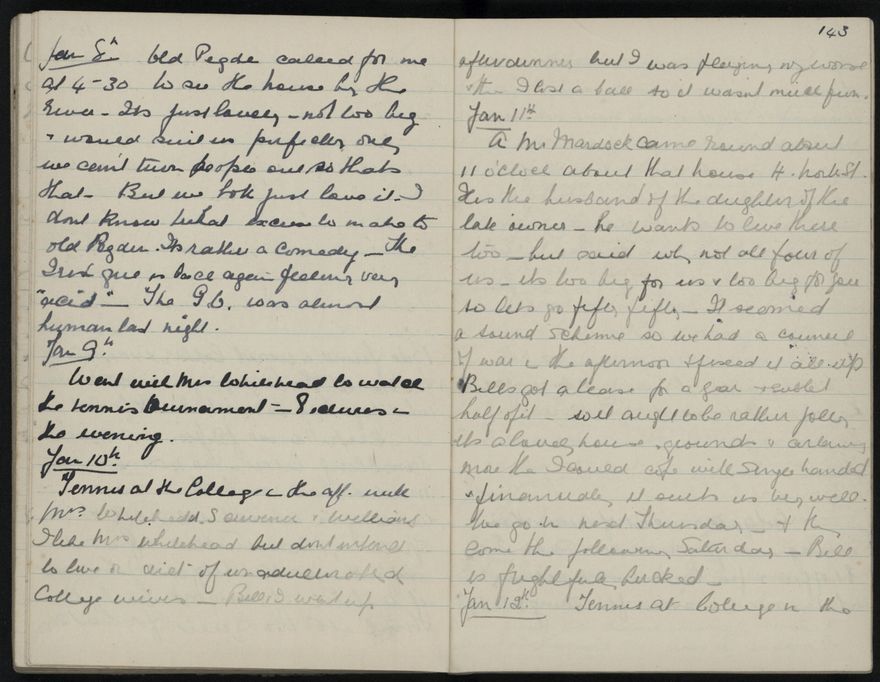 Jan 8th Old Pegde called for me
at 4-30 to see the house by the
River - Its just lovely - not too big
& would suit us perfectly only
we can't turn people out so thats
that - But we both just love it - I
dont know what excuse to make to
old Pegden. Its rather a comedy - The
I give in back again feeling very
"acid" - The G.C. was almost
human last night.
Jan 9th
Went with Mrs Whitehead to watch
the tennis tournament - Pictures in
the evening.
Jan 10th
Tennis at the College in the aft. with
Mrs Whitehead & Williams
I like Mrs Whitehead but dont intend
to live on diet of unadulterated
College wives - Bill & I went up
143
after dinner but I was playing my worst
& then I lost a ball so it wasn't much fun.
Jan 11th
A Mr Mardock came round about
11 o'clock about that house 4. York St.
Hes the husband of the daughter of the
late owner - he wants to live there
too - but said why not all four of
us - its too big for us & too big for you
so lets go fifty fifty - It seemed
a sound scheme so we had a council
of war in the afternoon & fixed it all up
Bills got a lease for a year & sublet
half of it - so it ought to be rather jolly
its a lovely house, grounds & certainly
more than I could cope with single handed
& financially it suits us very well.
We go in next Thursday - & they
come the following Saturday - Bill
is frightfully bucked -
Jan 12th Tennis at College in the